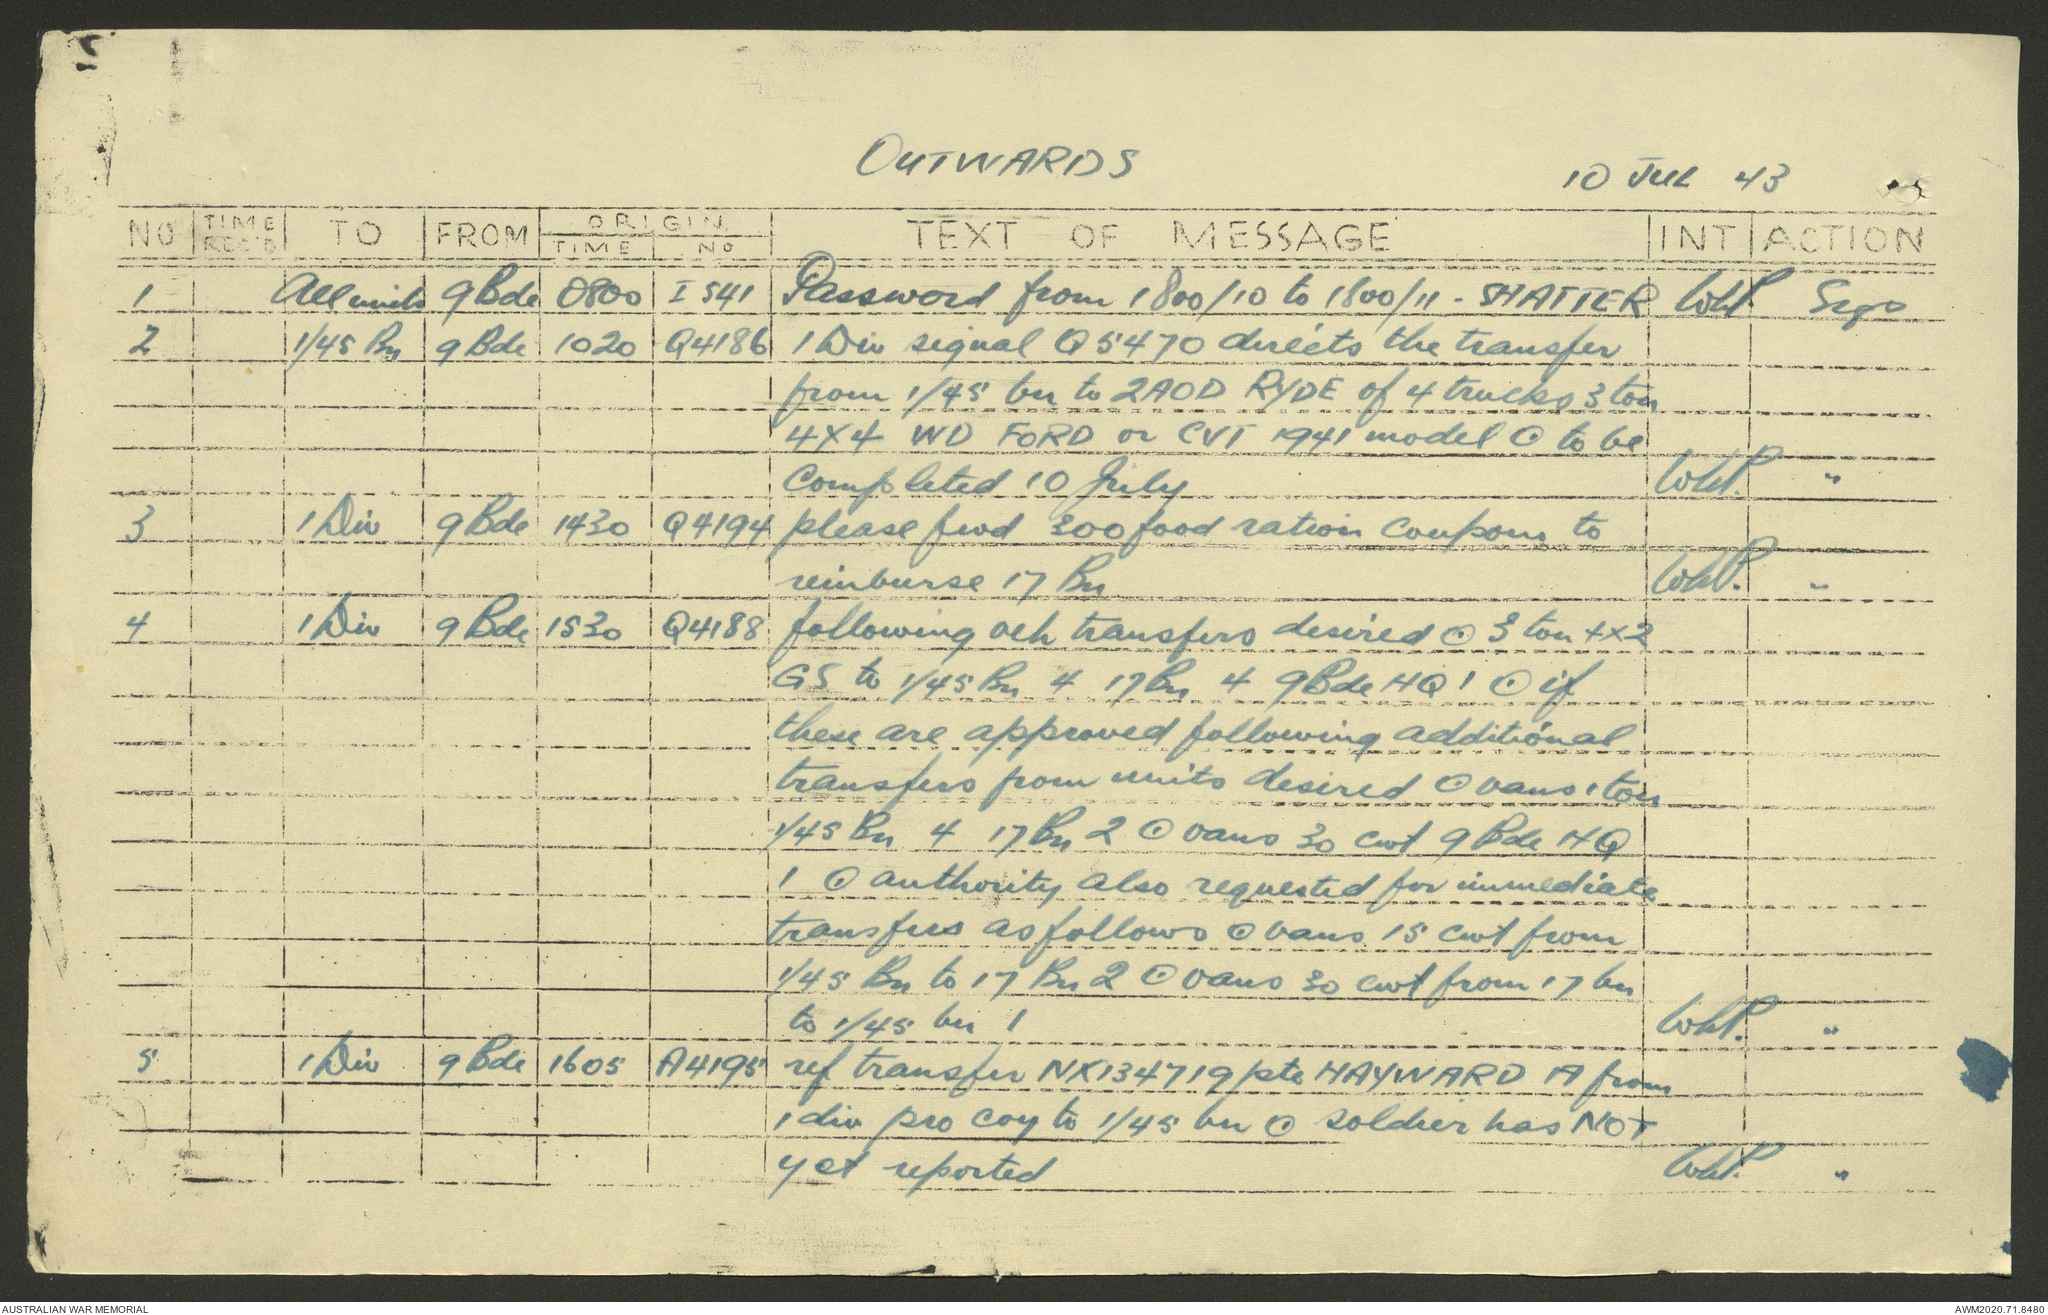 OUTWARDS
10 JUL 43
NO TIME REC'D TO FROM ORIGIN. TIME No TEXT OF MESSAGE INT ACTION
1 All units 9 Bde 0800 I 541 Password from 1800/10 to 1800/11 - SHATTER WHP. Sigs
2 1/45 Bn 9 Bde 1020 Q4186 1 Div signal Q5470 directs the transfer
from 1/45 bn to 2AOD RYDE of 4 trucks 3 ton
4X4 WD FORD or CVT 1941 model ⊙ to be
completed 10 July WHP. "
3 1 Div 9 Bde 1430 Q4194 please fwd 300 food ration coupons to
reimburse 17 Bn WHP. "
4 1 Div 9 Bde 1530 Q4188 following veh transfers desired ⊙ 3 ton 4x2
GS to 1/45 Bn 4 17 Bn 4 9 Bde HQ 1 ⊙ if
these are approved following additional
transfers from units desired ⊙ vans 1 ton
1/45 Bn 4 17 Bn 2 ⊙ vans 30 cwt 9 Bde HQ
1 ⊙ authority also requested for immediate
transfers as follows ⊙ vans 15 cwt from
1/45 Bn to 17 Bn 2 ⊙ vans 30 cwt from 17 bn
to 1/45 bn 1 WHP. "
5 1 Div 9 Bde 1605 A4195 ref transfer NX134719 pte HAYWARD A from
1 div pro coy to 1/45 bn ⊙ soldier has NOT
yet reported WHP. "
AUSTRALIAN WAR MEMORIAL
AWM2020.71.8480